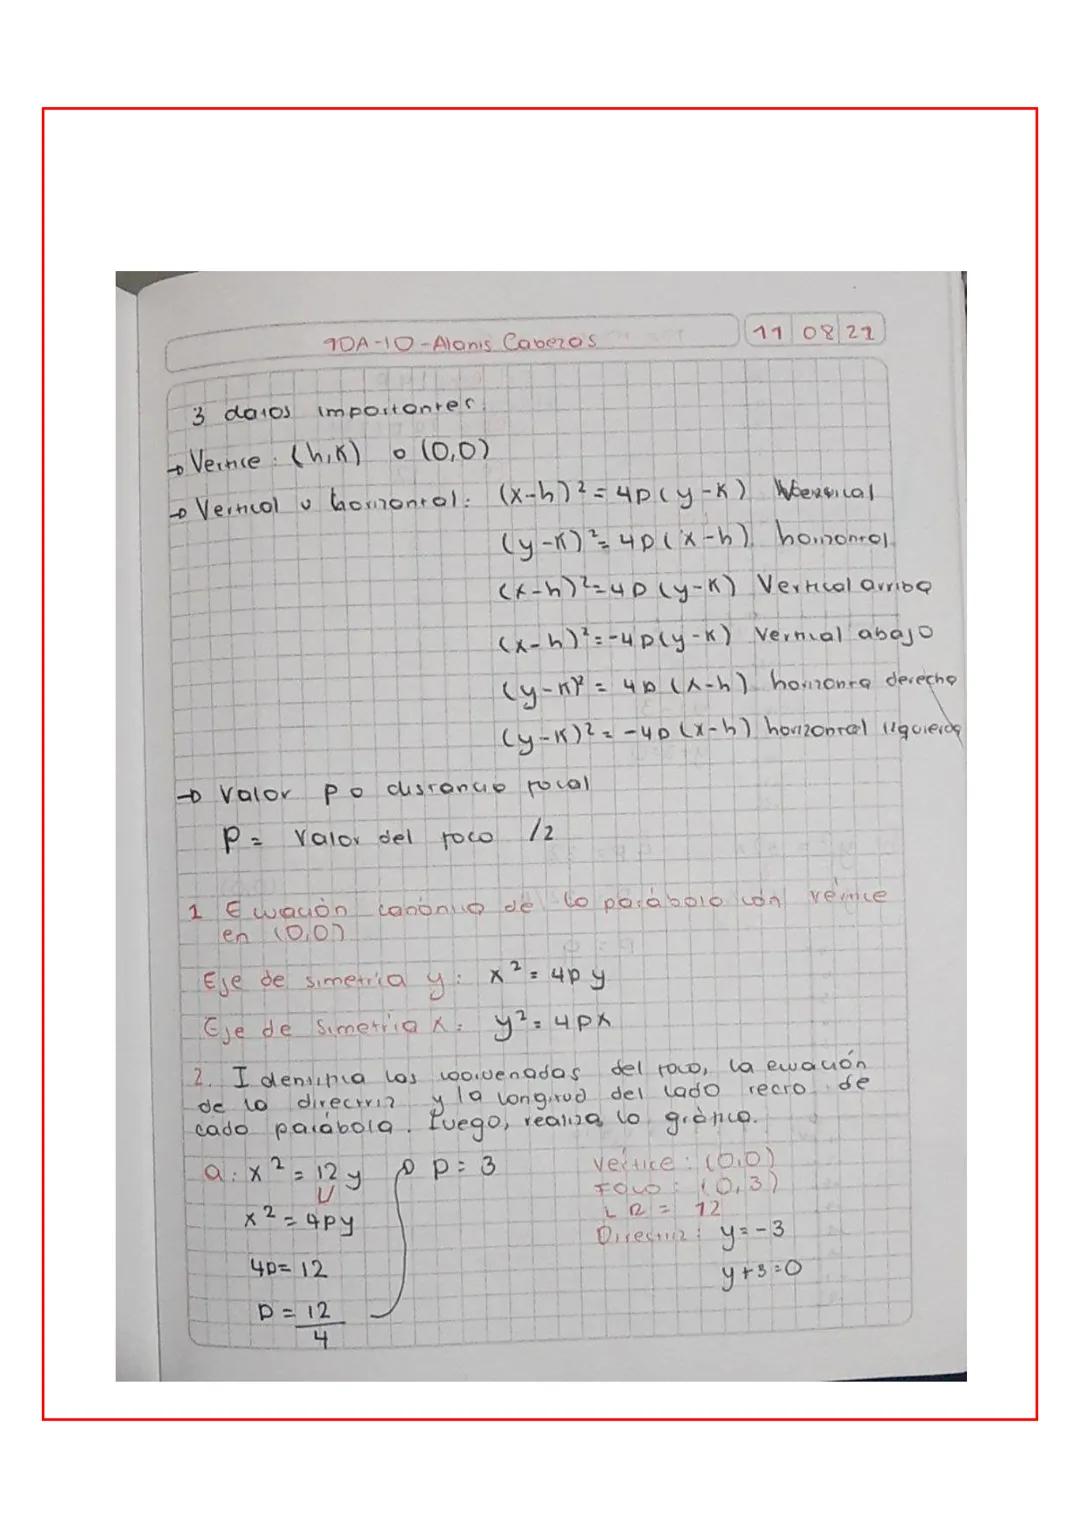 10A-10-Alanis Cabezas 11 08 21
3 datos importantes
→ Vértice: (h,K) o (0,0)
→ Vertical u horizontal: (x-h)² = 4p(y-K) Vertical
(y-K)² = 4p(x-h) horizontal
(x-h)² = 4p(y-K) Vertical arriba
(x-h)² = -4p(y-K) Vertical abajo
(y-K)² = 4p(x-h) horizonta derecha
(y-K)² = -4p(x-h) horizontal izquierda
→ Valor p o distancia focal
P = Valor del foco /2
1 Ecuación canónica de la parábola con vértice
en (0,0)
Eje de simetría y: x² = 4py
Eje de simetria x: y² = 4px
2. Identifica las coordenadas del foco, la ecuación
de la directriz y la longitud del lado recto de
cada parábola. Luego, realiza la gráfica.
a: x² = 12y p = 3 Vértice: (0,0)
Foco: (0,3)
x² = 4py LR = 12
Directriz: y = -3
4p = 12 y+3=0
p = 12
4